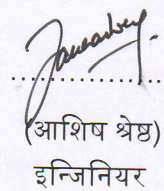 (आशिष श्रेष्ठ)
इन्जिनियर